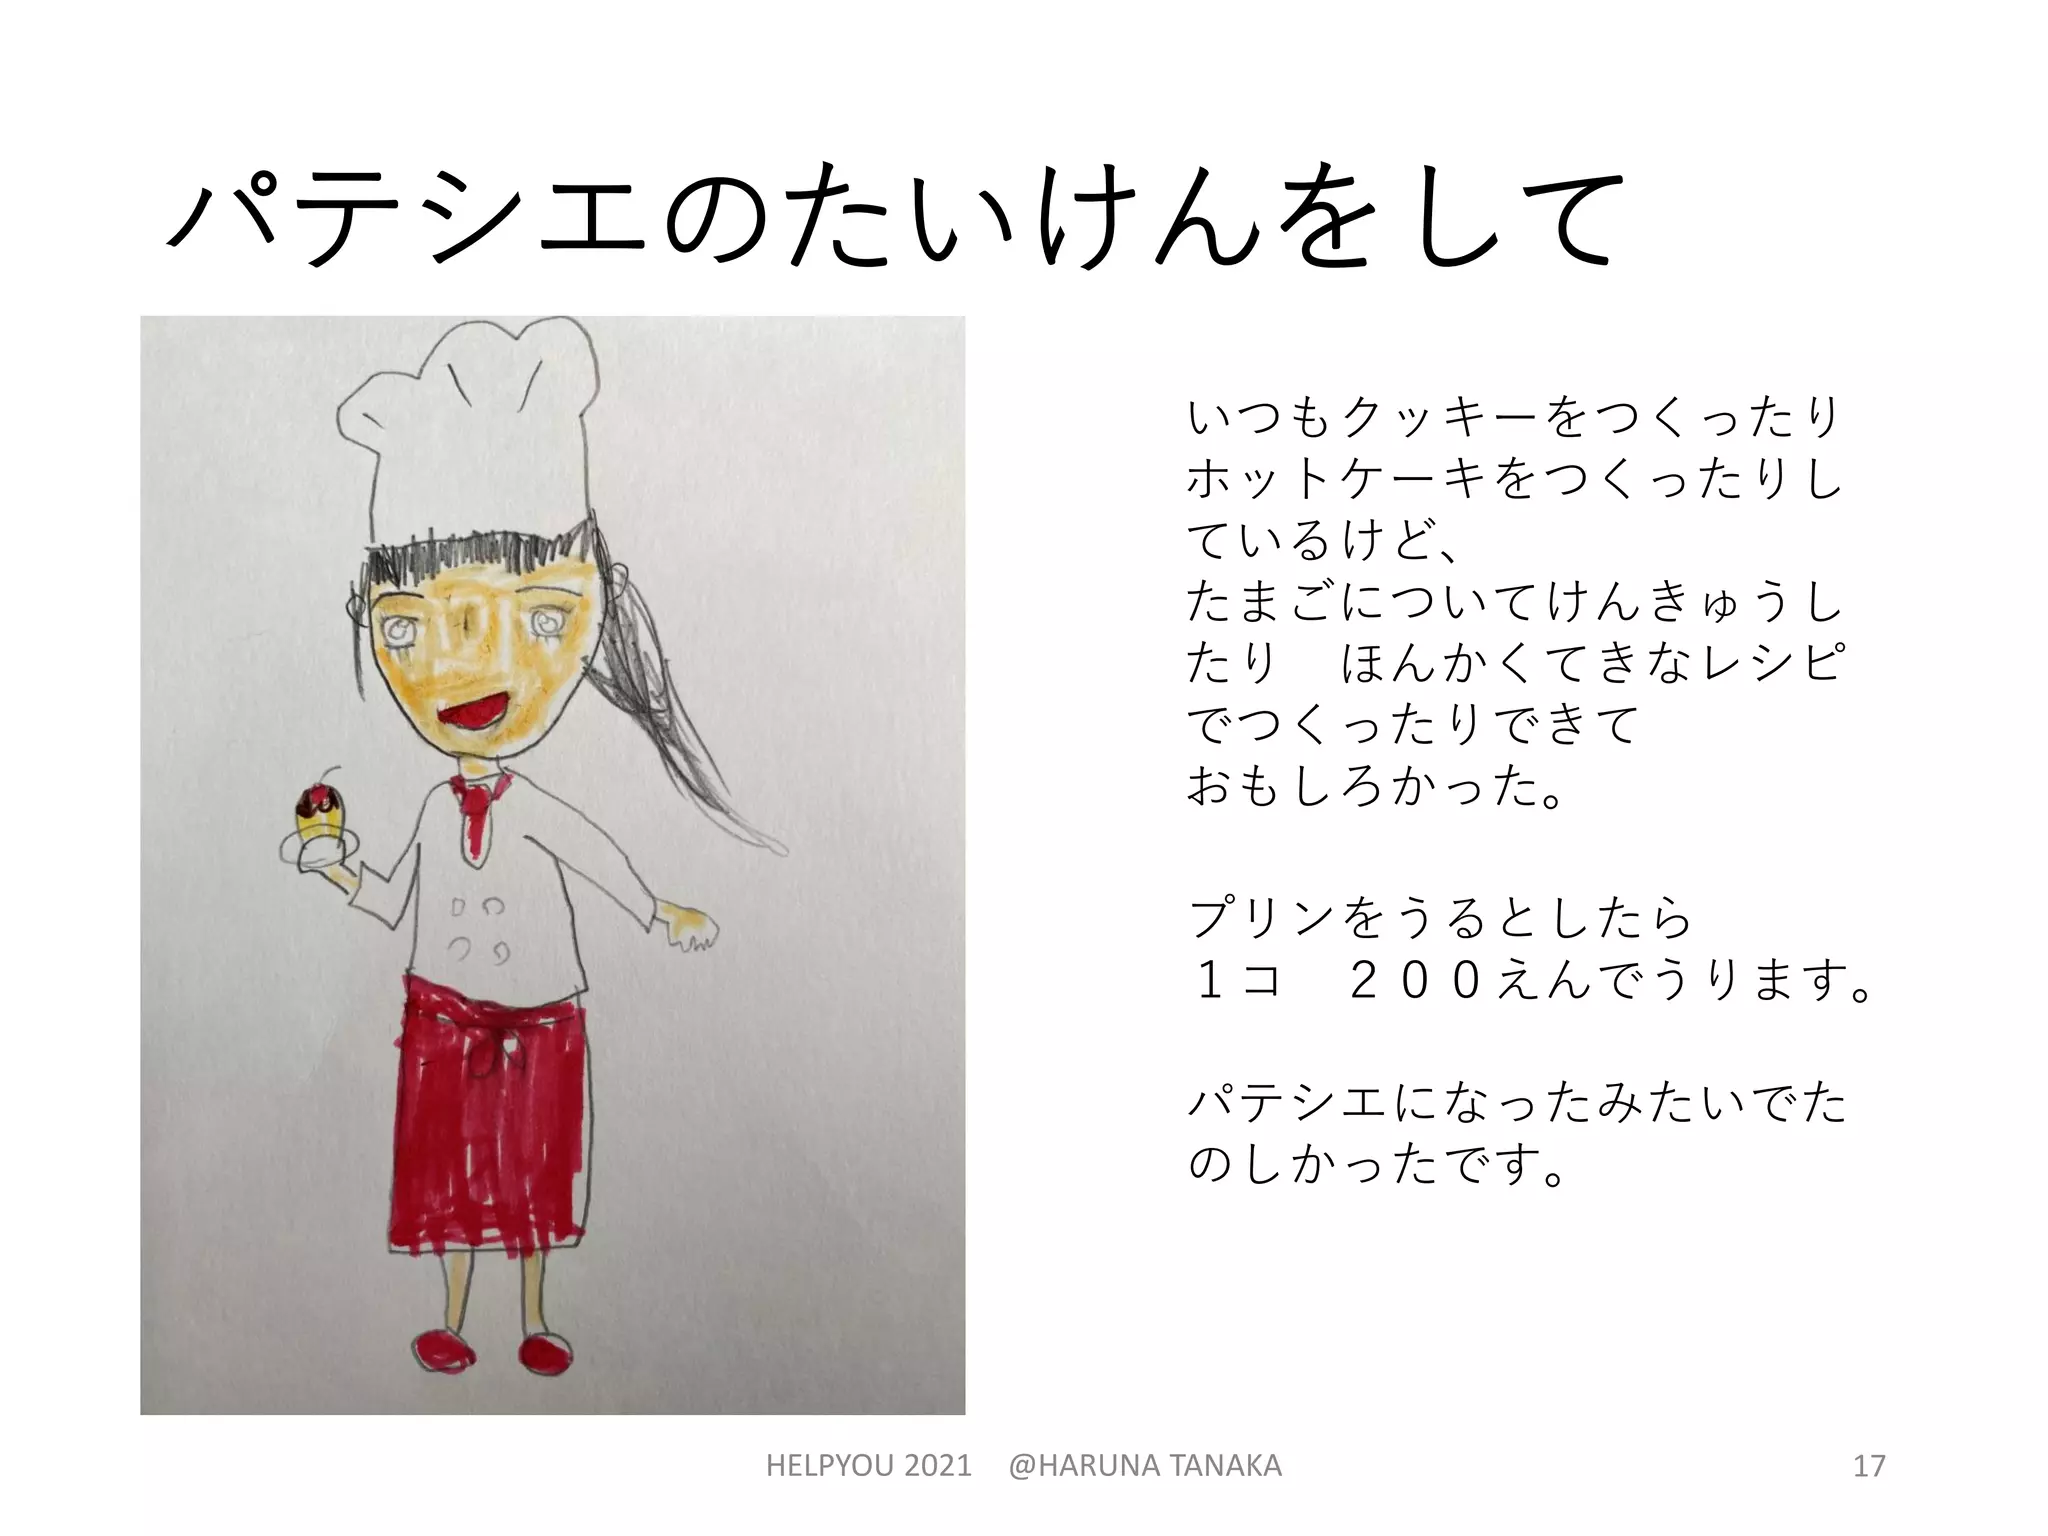 パテシエのたいけんをして
いつもクッキーをつくったり
ホットケーキをつくったりし
ているけど、
たまごについてけんきゅうし
たり　ほんかくてきなレシピ
でつくったりできて
おもしろかった。
プリンをうるとしたら
１コ　２００えんでうります。
パテシエになったみたいでた
のしかったです。
HELPYOU 2021　@HARUNA TANAKA
17